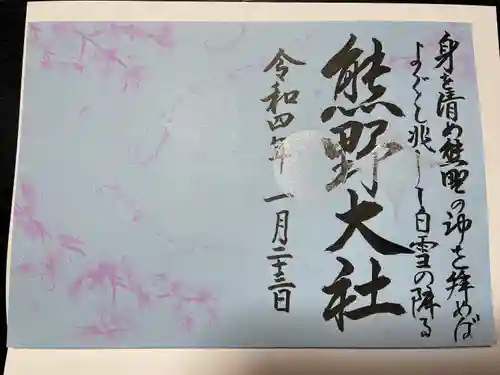 身を清め熊野の神を拝めば
よごと兆しし白雪の降る
熊野大社
令和四年 一月二十三日